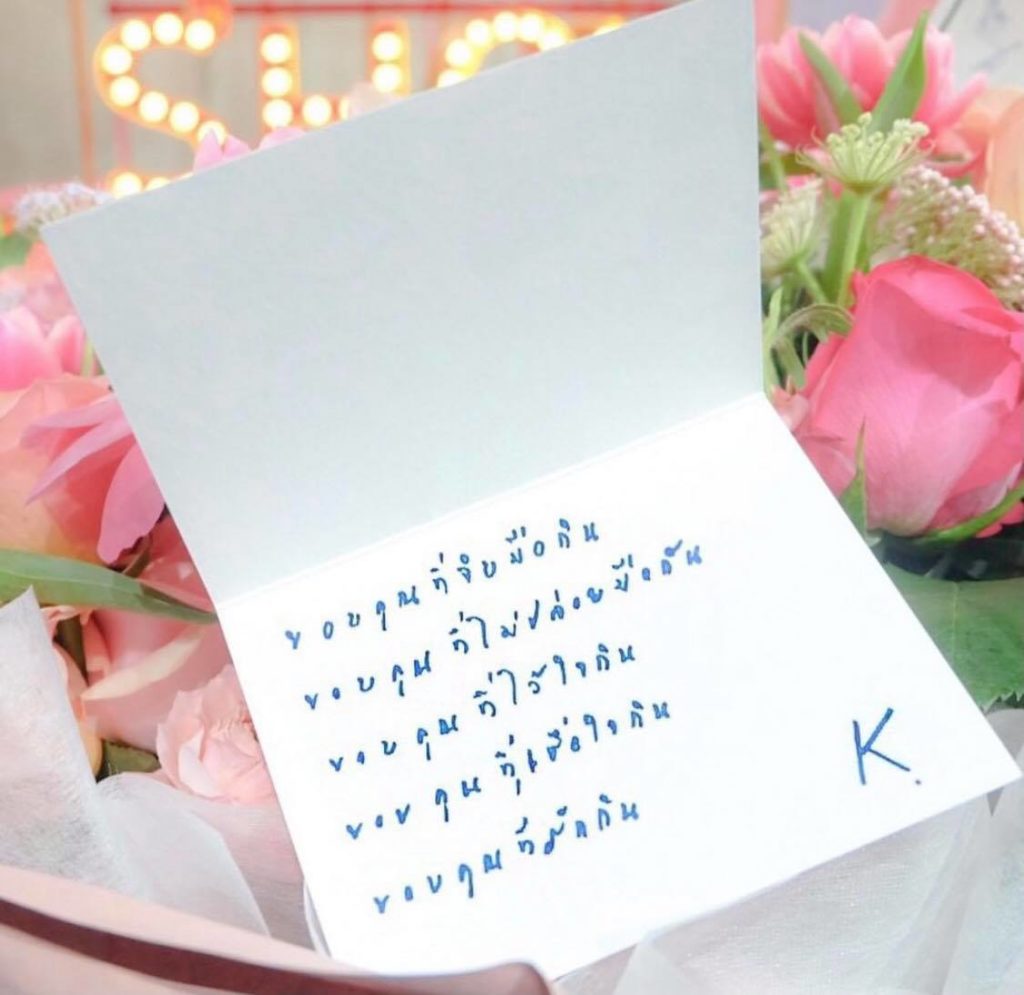 SHO
ขอบคุณที่จับมือกัน
ขอบคุณที่ไม่ปล่อยมือกัน
ขอบคุณที่ไว้ใจกัน
ขอบคุณที่เชื่อใจกัน
ขอบคุณที่รักกัน
K.